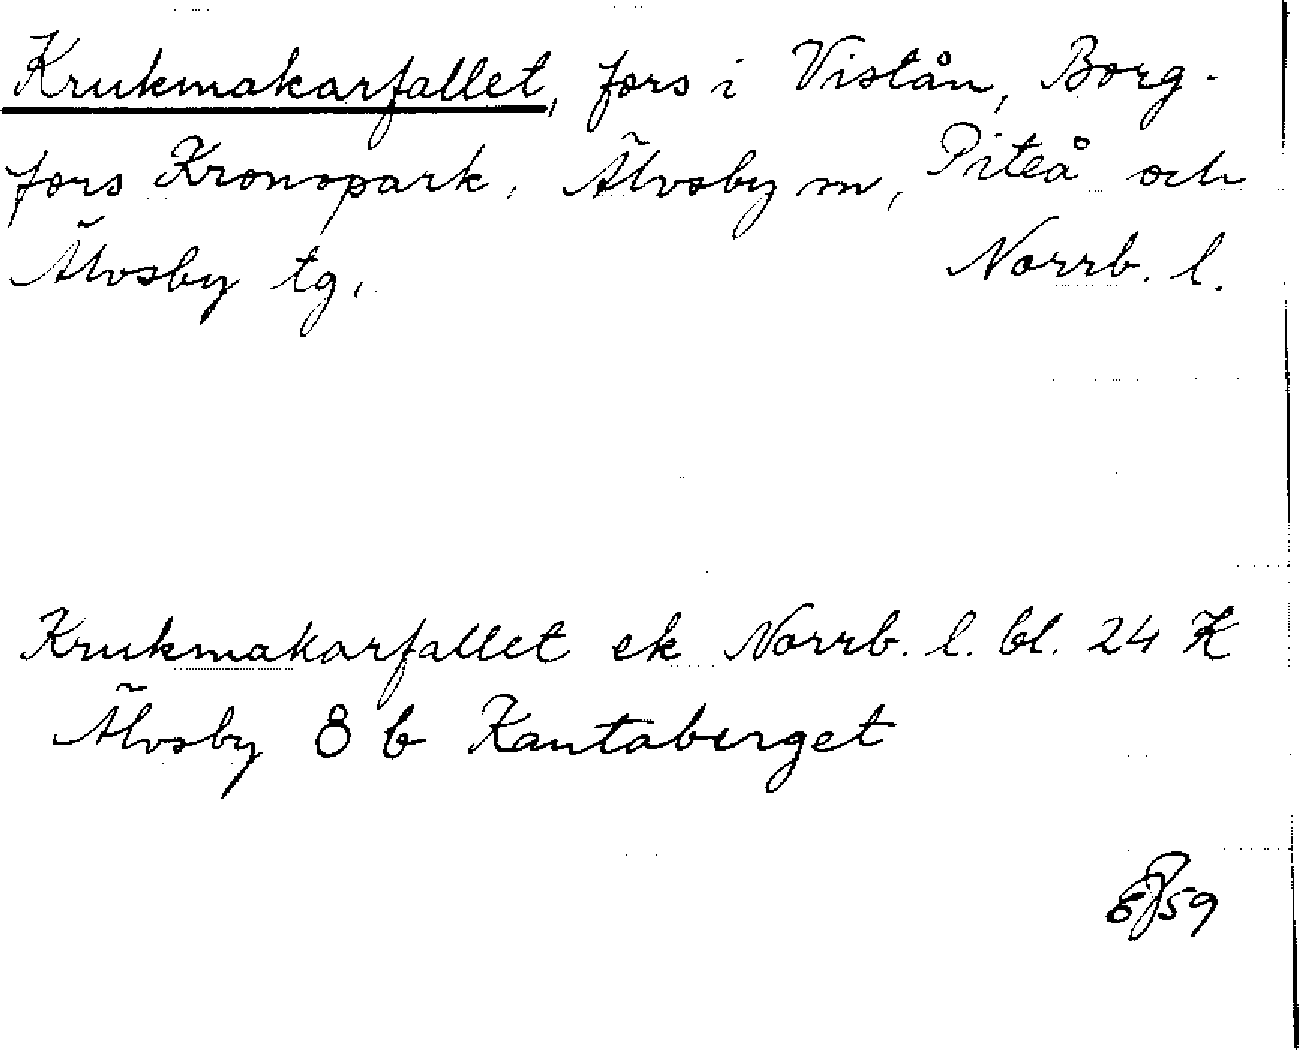 Krukmakarfallet, fors i Vistån, Borg-
fors Kronopark, Älvsby sn, Piteå och
Älvsby tg. Norrb. l.
Krukmakarfallet ek Norrb. l. bl. 24 K
Älvsby 8 b Kantaberget
59